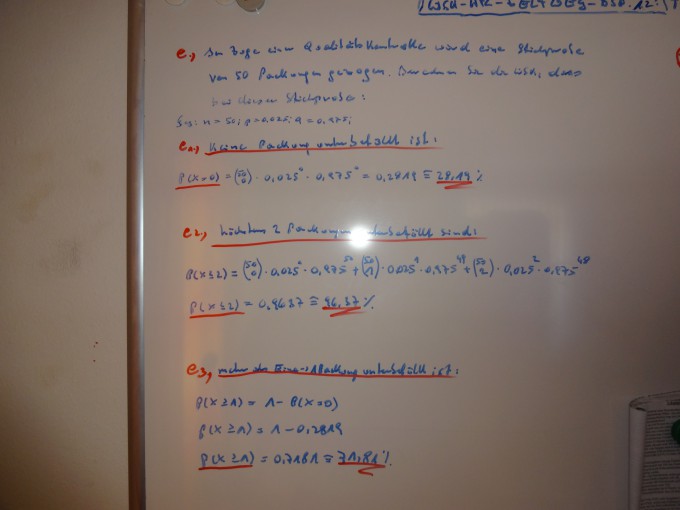 e.) Im Zuge einer Qualitätskontrolle wird eine Stichprobe
von 50 Packungen gezogen. Berechnen Sie die WSK, dass
bei dieser Stichprobe:
n = 50; p = 0,025; q = 0,975;
e1) Keine Packung unterbefüllt ist:
P(X=0) = (50 0) · 0,025⁰ · 0,975 = 0,2819 ≙ 28,19 %
e2) höchstens 2 Packungen unterbefüllt sind:
P(X≤2) = (50 0) · 0,025⁰ · 0,975⁵⁰ + (50 1) · 0,025¹ · 0,975⁴⁹ + (50 2) · 0,025² · 0,975⁴⁸
P(X≤2) = 0,9637 ≙ 96,37 %.
e3) Packung unterbefüllt ist:
P(X≥1) = 1 - P(X=0)
P(X≥1) = 1 - 0,2819
P(X≥1) = 0,7181 ≙ 71,81 %.